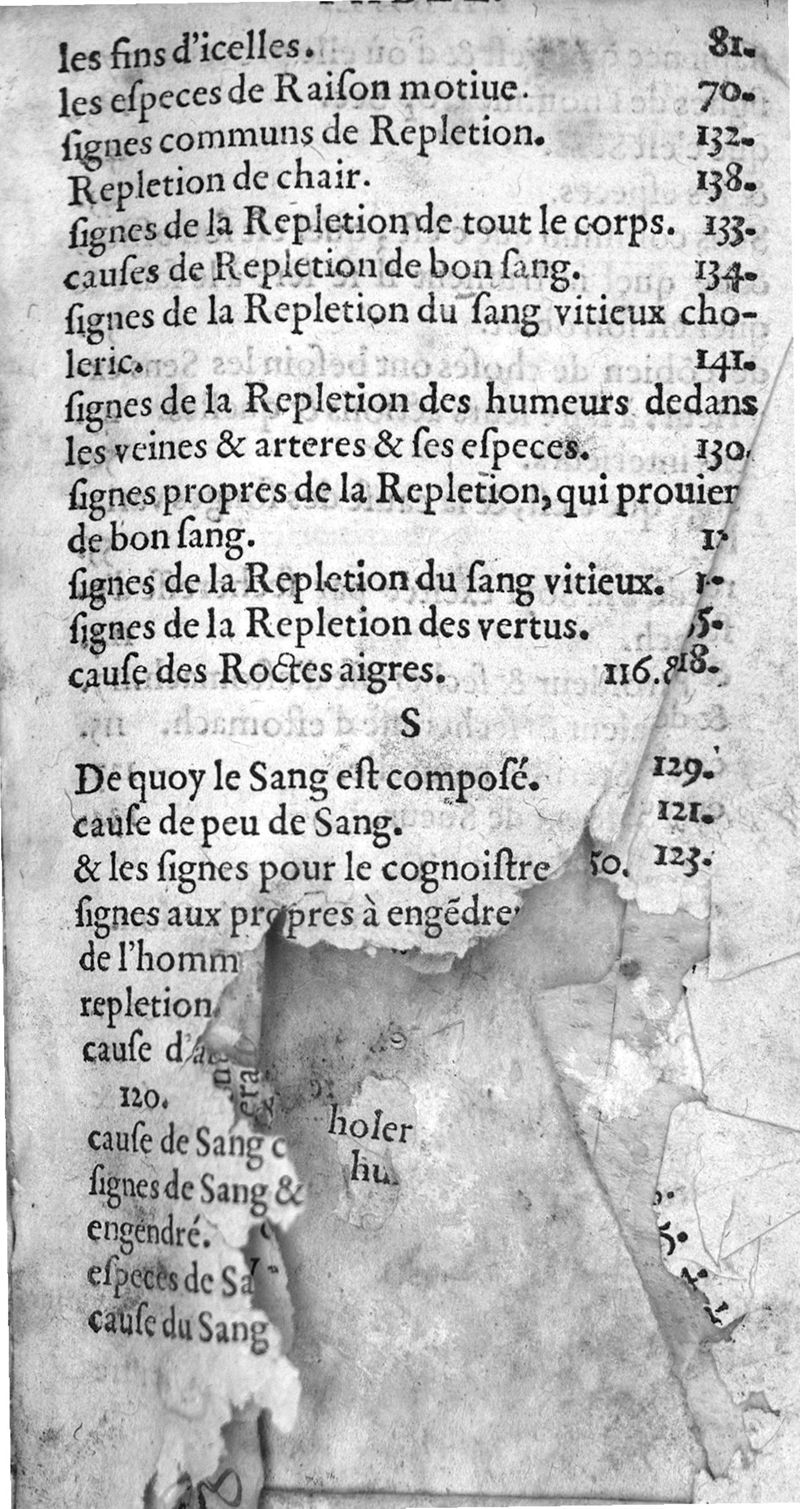 les fins d'icelles. 81.
les eſpeces de Raiſon motiue. 70.
ſignes communs de Repletion. 132.
Repletion de chair. 138.
ſignes de la Repletion de tout le corps. 133.
cauſes de Repletion de bon ſang. 134.
ſignes de la Repletion du ſang vitieux cho-
leric. 141.
ſignes de la Repletion des humeurs dedans
les veines & arteres & ſes eſpeces. 130.
ſignes propres de la Repletion, qui prouier
de bon ſang.
ſignes de la Repletion du ſang vitieux.
ſignes de la Repletion des vertus.
cauſe des Roctes aigres. 116. 818.
S
De quoy le Sang eſt compoſé. 129.
cauſe de peu de Sang. 121.
& les ſignes pour le cognoiſtre 50. 123.
ſignes aux propres à engẽdre
de l'homm
repletion.
cauſe d'a
120.
cauſe de Sang c
holer
ſignes de Sang &
hu
engendré.
eſpeces de Sa
cauſe du Sang